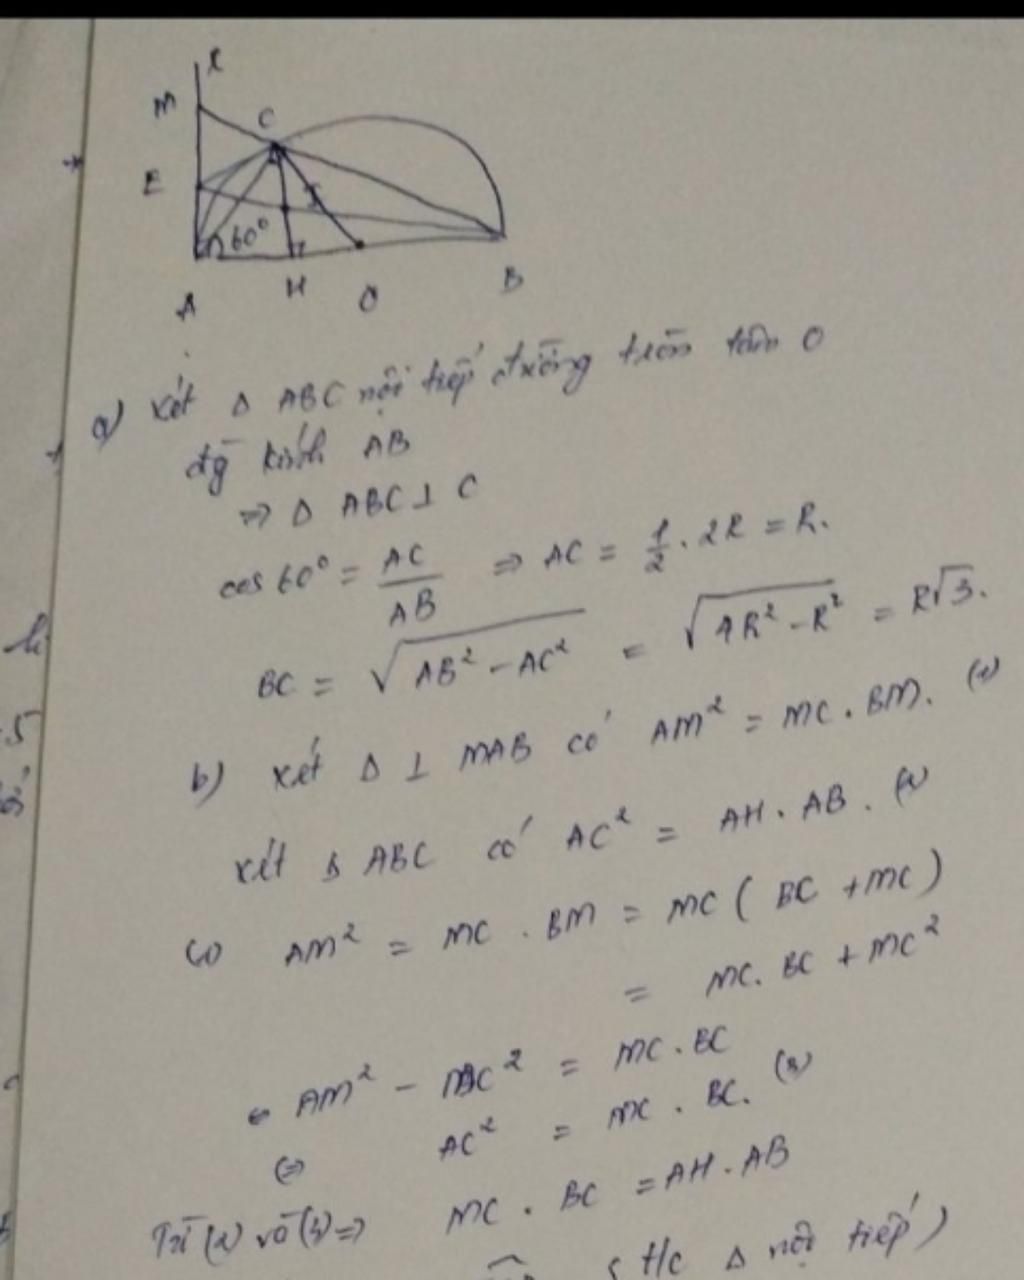 x
M
C
E
I
60°
A
H
O
B
a) Xét Δ ABC nội tiếp đường tròn tâm O
đg kính AB
=> Δ ABC ⊥ C
cos 60° = AC/AB => AC = 1/2 . 2R = R.
BC = √(AB² - AC²) = √(4R² - R²) = R√3.
b) Xét Δ ⊥ MAB có AM² = MC . BM. (1)
Xét Δ ABC có AC² = AH . AB . (2)
Có AM² = MC . BM = MC ( BC + MC )
= MC. BC + MC²
AM² - MC² = MC . BC
<=> AC² = MC . BC. (3)
Từ (2) và (3) => MC . BC = AH . AB
t/c Δ nội tiếp )